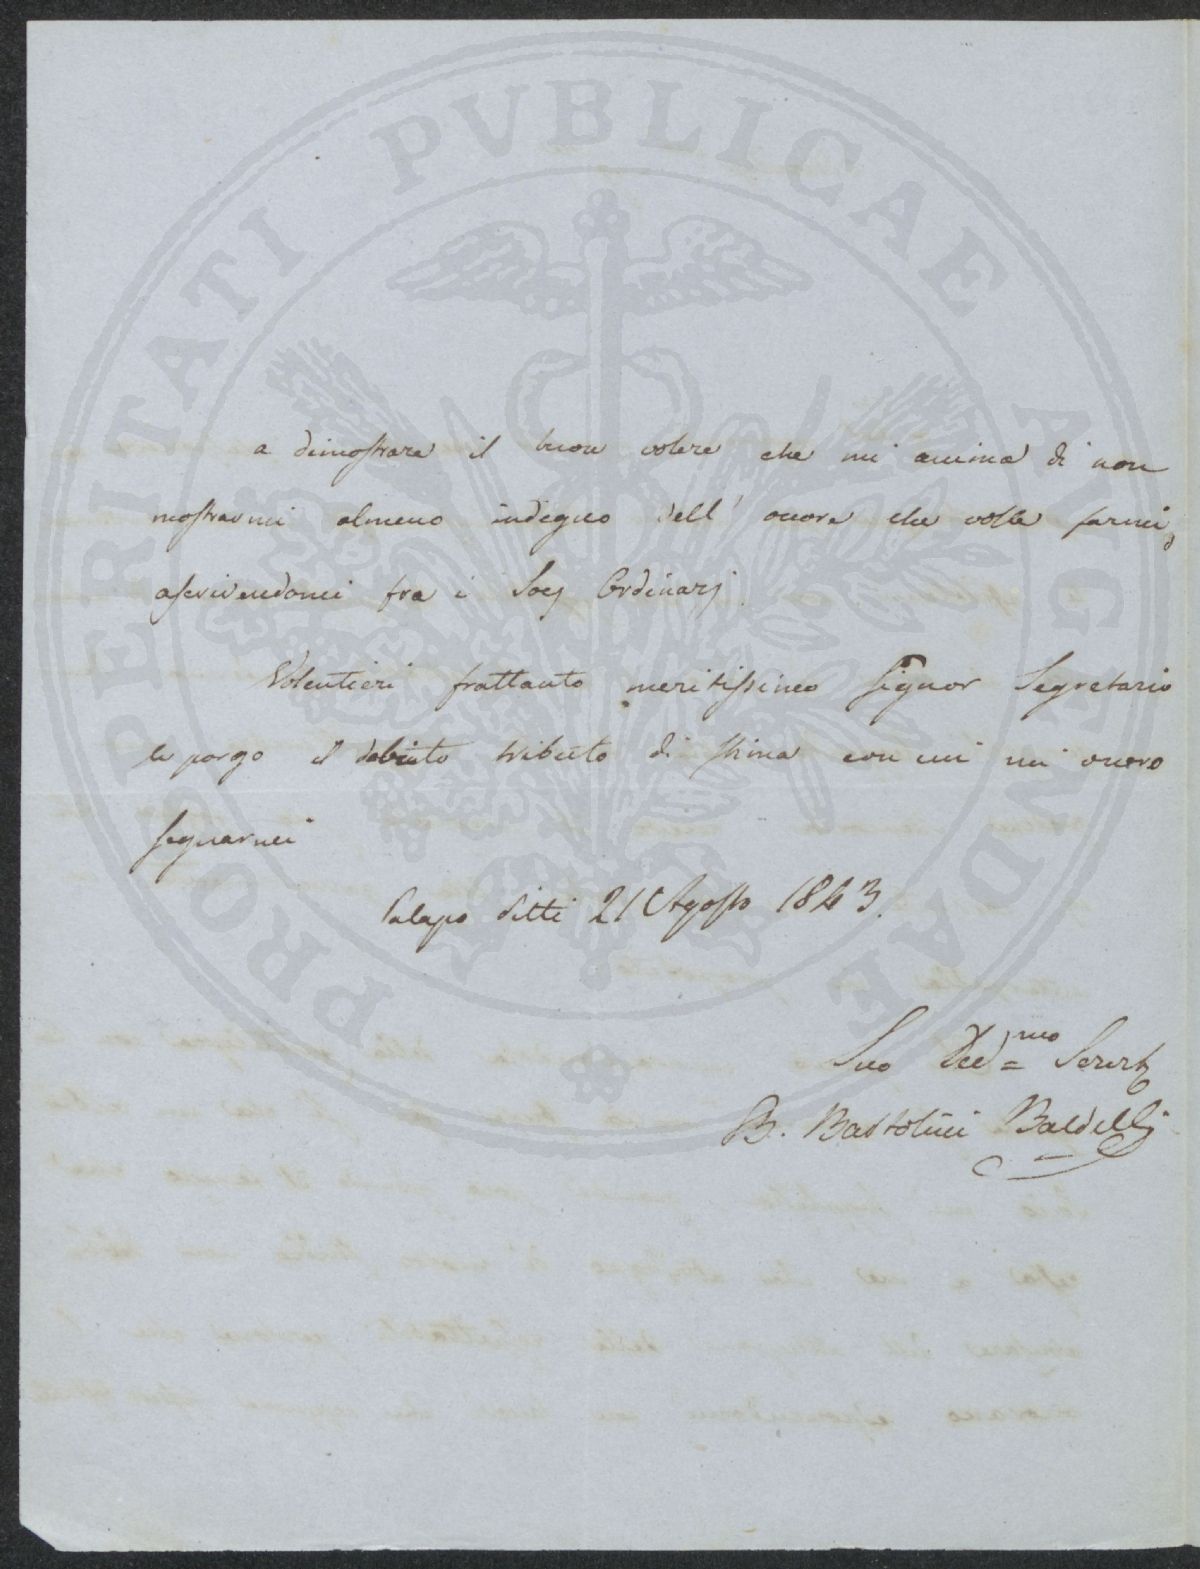 PROSPERITATI PUBLICAE AUGENDAE
a dimostrare il buon volere che mi anima di non
mostrarmi almeno indegno dell' onore che volle farmi,
ascrivendomi fra i Socj Ordinarj.
Volentieri frattanto meritissimo Signor Segretario
le porgo il debito tributo di stima con cui mi onoro
segnarmi
Palazzo Pitti 21 Agosto 1843.
Suo Dev=mo Servit
B. Bartolini Baldelli